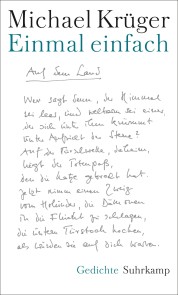 Michael Krüger
Einmal einfach
Auf dem Land
Wer sagt denn, der Himmel
sei leer, und weltarm sei einer,
der sich ihm krümmt
unter Aufsicht der Sterne?
Auf der Türschwelle, daheim,
liegt der Totenpaß,
den die Katze gebracht hat.
Jetzt nimm einen Zweig
vom Holunder, die Dämonen
in die Flucht zu schlagen,
die unterm Türstock hocken,
als würden sie auf dich warten.
Gedichte Suhrkamp